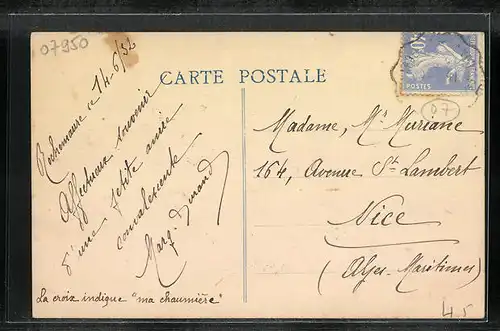 07950
CARTE POSTALE
Rochemaure ce 14-6/32
Affectueux souvenir
d'une petite amie
convalescente
Marg. Durand
La croix indique "ma chaumière"
POSTES
07
Madame, Mlle Muriane
164, Avenue St Lambert
Nice
(Alpes-Maritimes)
45